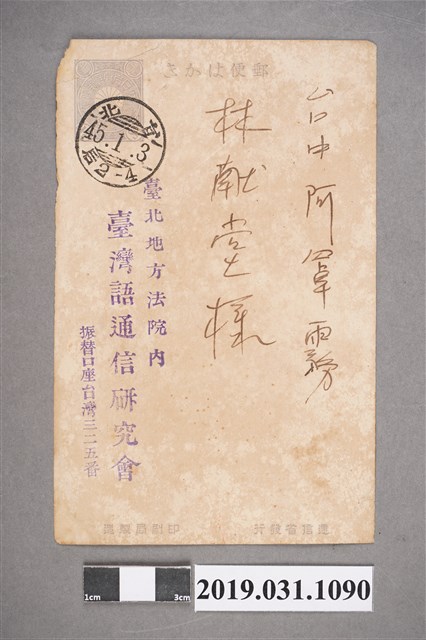 郵便はがき
台中阿罩霧
林献堂様
臺北地方法院內
臺灣語通信研究會
振替口座台灣三二五番
45.1.3
印刷局製造
逓信省發行
1cm
3cm
2019.031.1090